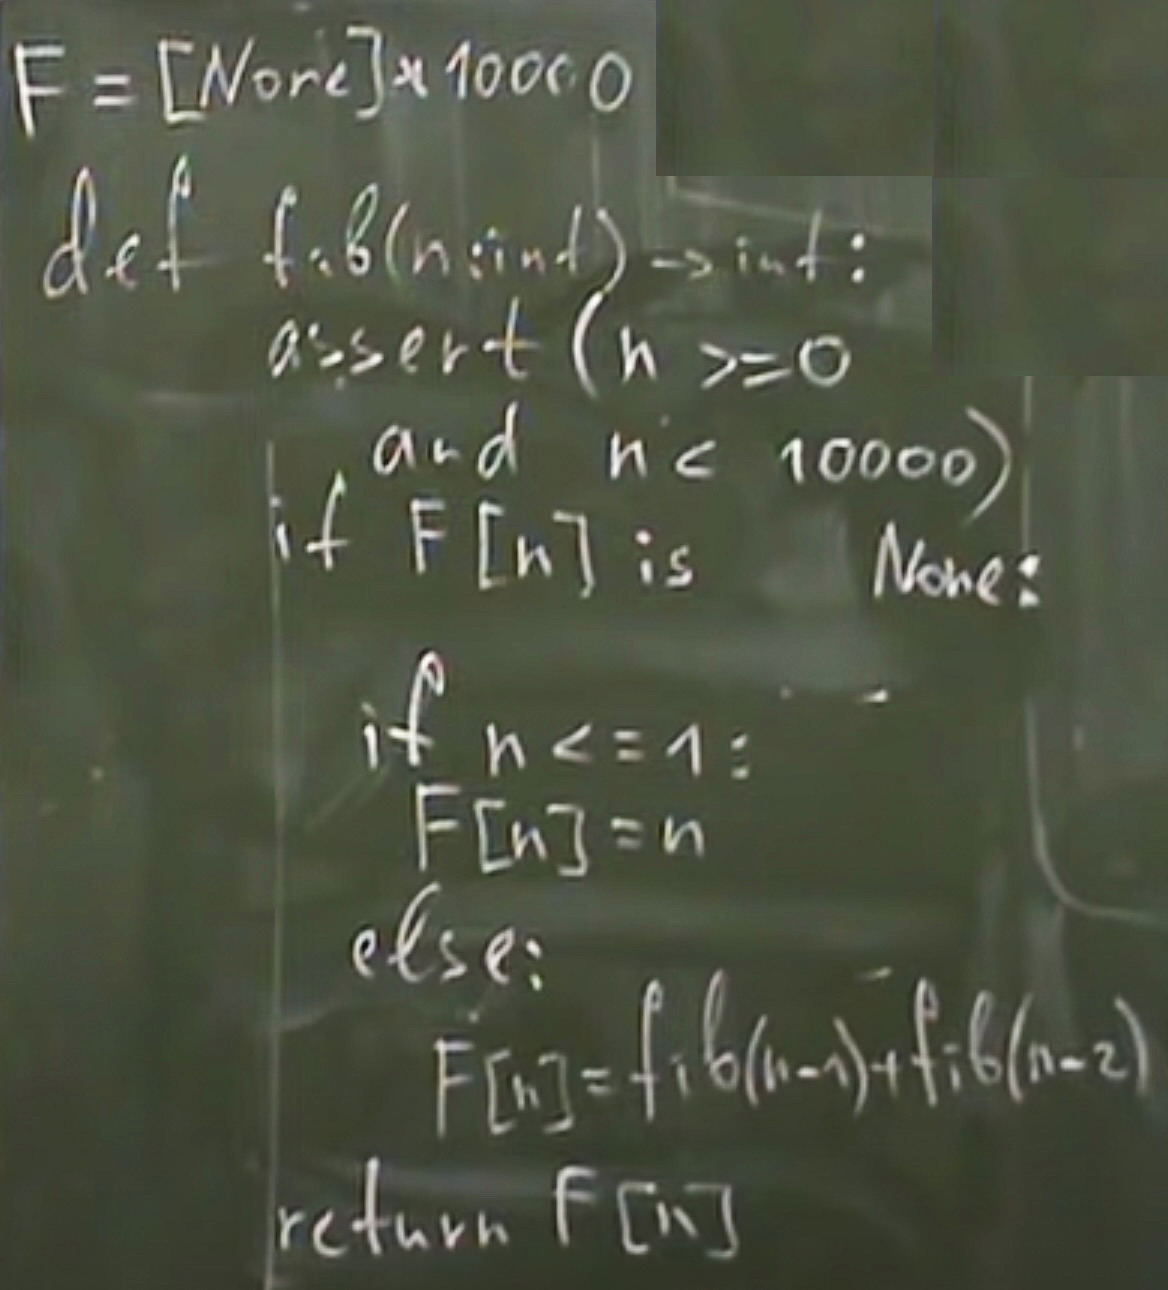 F = [None]*10000
def fib(n:int)->int:
assert (n >=0
and n < 10000)
if F[n] is None:
if n <= 1:
F[n]=n
else:
F[n]=fib(n-1)+fib(n-2)
return F[n]